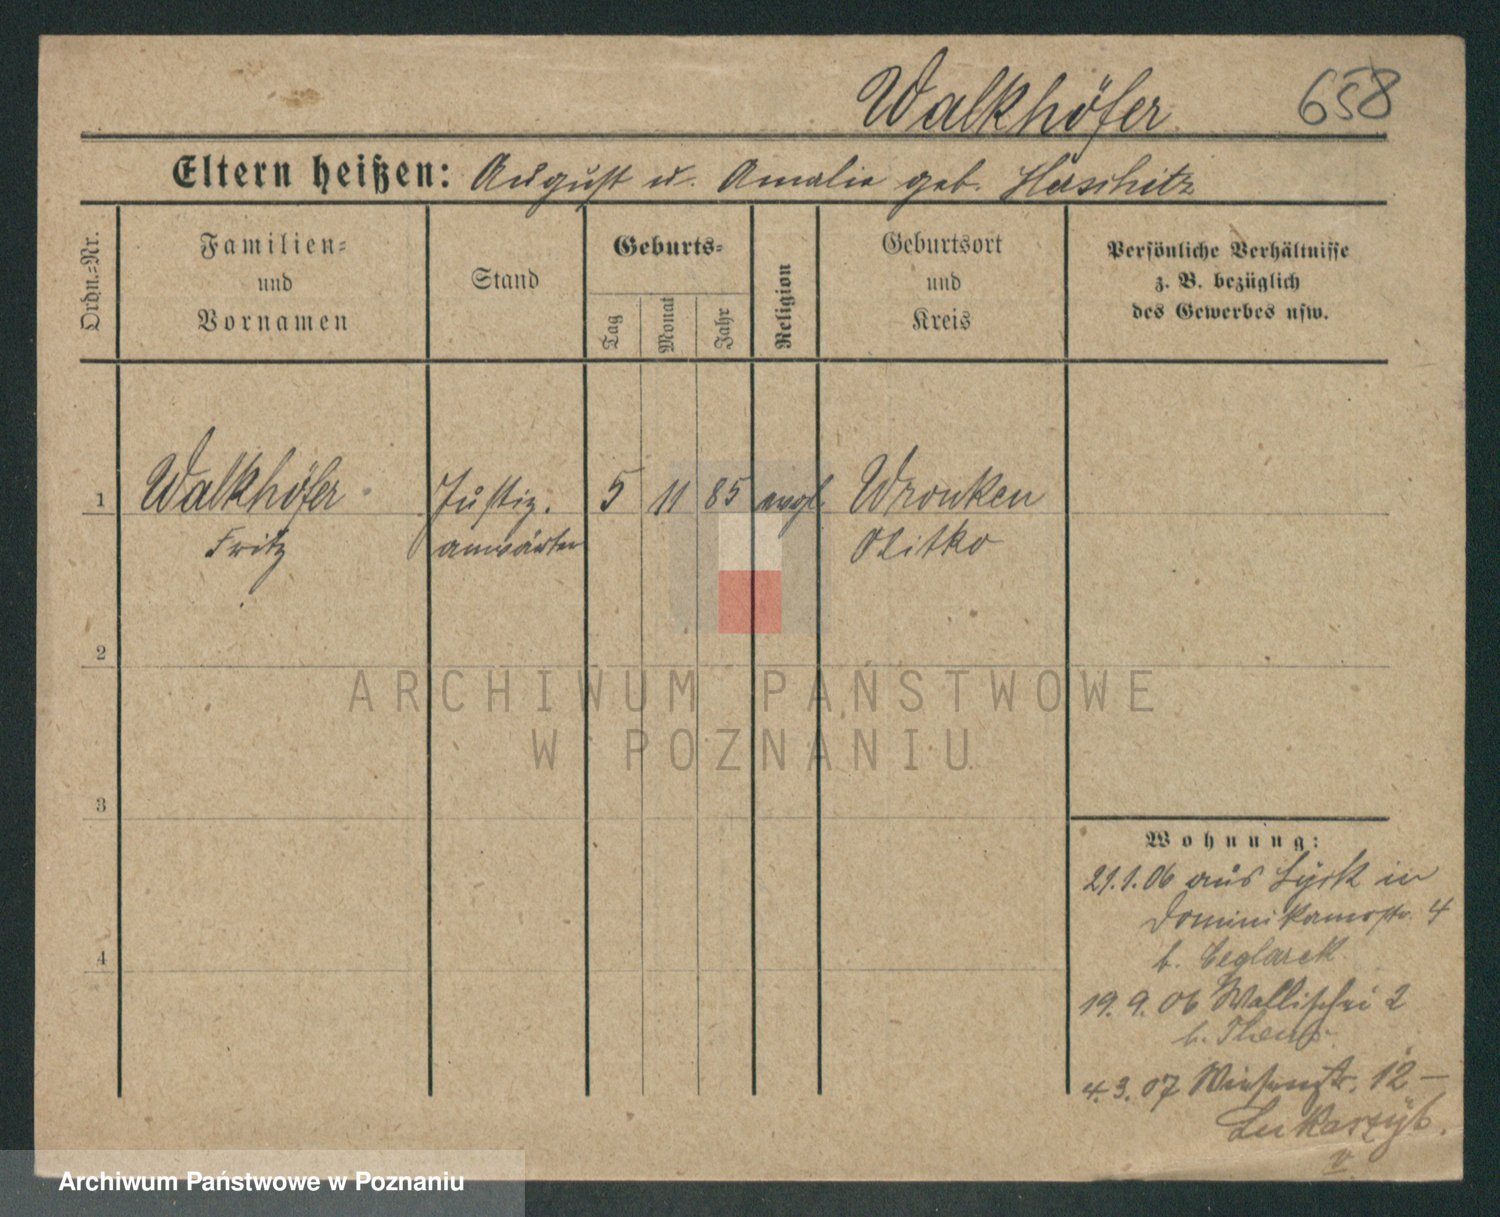 Walkhöfer 658
Eltern heißen: August u. Amalie geb. Haschitz
Ordn.-Nr.
Familien- und Vornamen
Stand
Geburts-
Tag
Monat
Jahr
Religion
Geburtsort und Kreis
Persönliche Verhältnisse
z. B. bezüglich
des Gewerbes usw.
1 Walkhöfer Justiz. 5 11 85 evgl. Wronken
Fritz anwärter Oletzko
2
3
4
Wohnung:
21.1.06 aus Lyck in
Dominikanerstr. 4
b. Ceglarek
19.9.06 Wallischei 2
b.
4.3.07 Wiesenstr. 12 –
ARCHIWUM PAŃSTWOWE
W POZNANIU
Archiwum Państwowe w Poznaniu